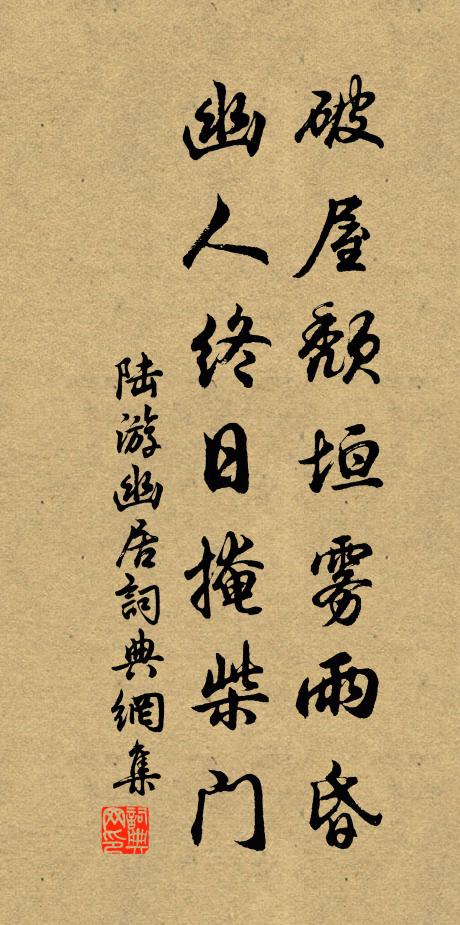 破屋颓垣雾雨昏
幽人终日掩柴门
陆游幽居詞典網集
詞典网印